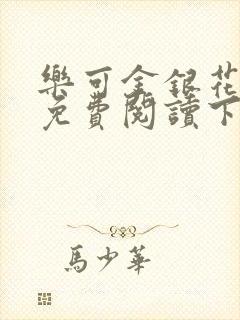 樂可金銀花
免費閱讀下
馬少華